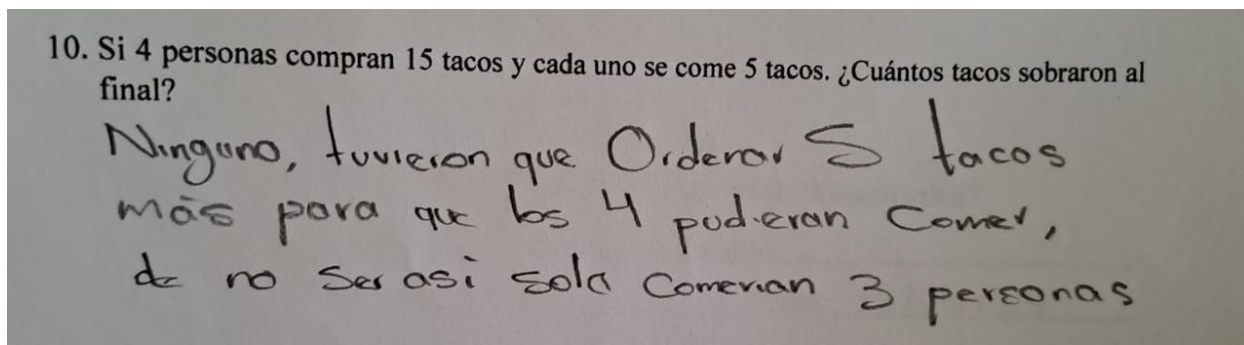 10. Si 4 personas compran 15 tacos y cada uno se come 5 tacos. ¿Cuántos tacos sobraron al
final?
Ninguno, tuvieron que Ordenar 5 tacos
más para que los 4 pudieran Comer,
de no Ser asi solo Comerian 3 personas